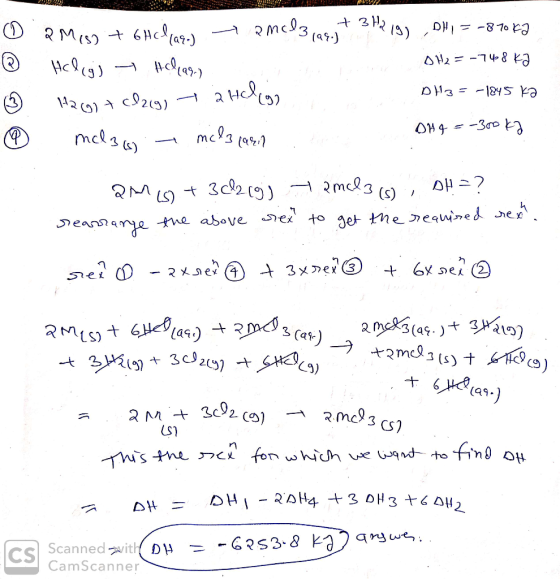 ① 2M(s) + 6Hcl(aq.) → 2mcl3(aq.) + 3H2(g) , DH1 = -870 kJ
② Hcl(g) → Hcl(aq.) ΔH2 = -74.8 kJ
③ H2(g) + cl2(g) → 2Hcl(g) DH3 = -1845 kJ
④ mcl3(s) → mcl3(aq.) DH4 = -300 kJ
2M(s) + 3cl2(g) → 2mcl3(s) , DH = ?
rearrange the above rexⁿ to get the required rexⁿ.
rexⁿ ① - 2x rexⁿ ④ + 3x rexⁿ ③ + 6x rexⁿ ②
2M(s) + 6Hcl(aq.) + 2mcl3(aq.) → 2mcl3(aq.) + 3H2(g)
+ 3H2(g) + 3cl2(g) + 6Hcl(g) + 2mcl3(s) + 6Hcl(g)
+ 6Hcl(aq.)
= 2M(s) + 3cl2(g) → 2mcl3(s)
This the rexⁿ for which we want to find DH
= DH = DH1 - 2DH4 + 3DH3 + 6DH2
= DH = -6253.8 kJ answer.
CS Scanned with
CamScanner